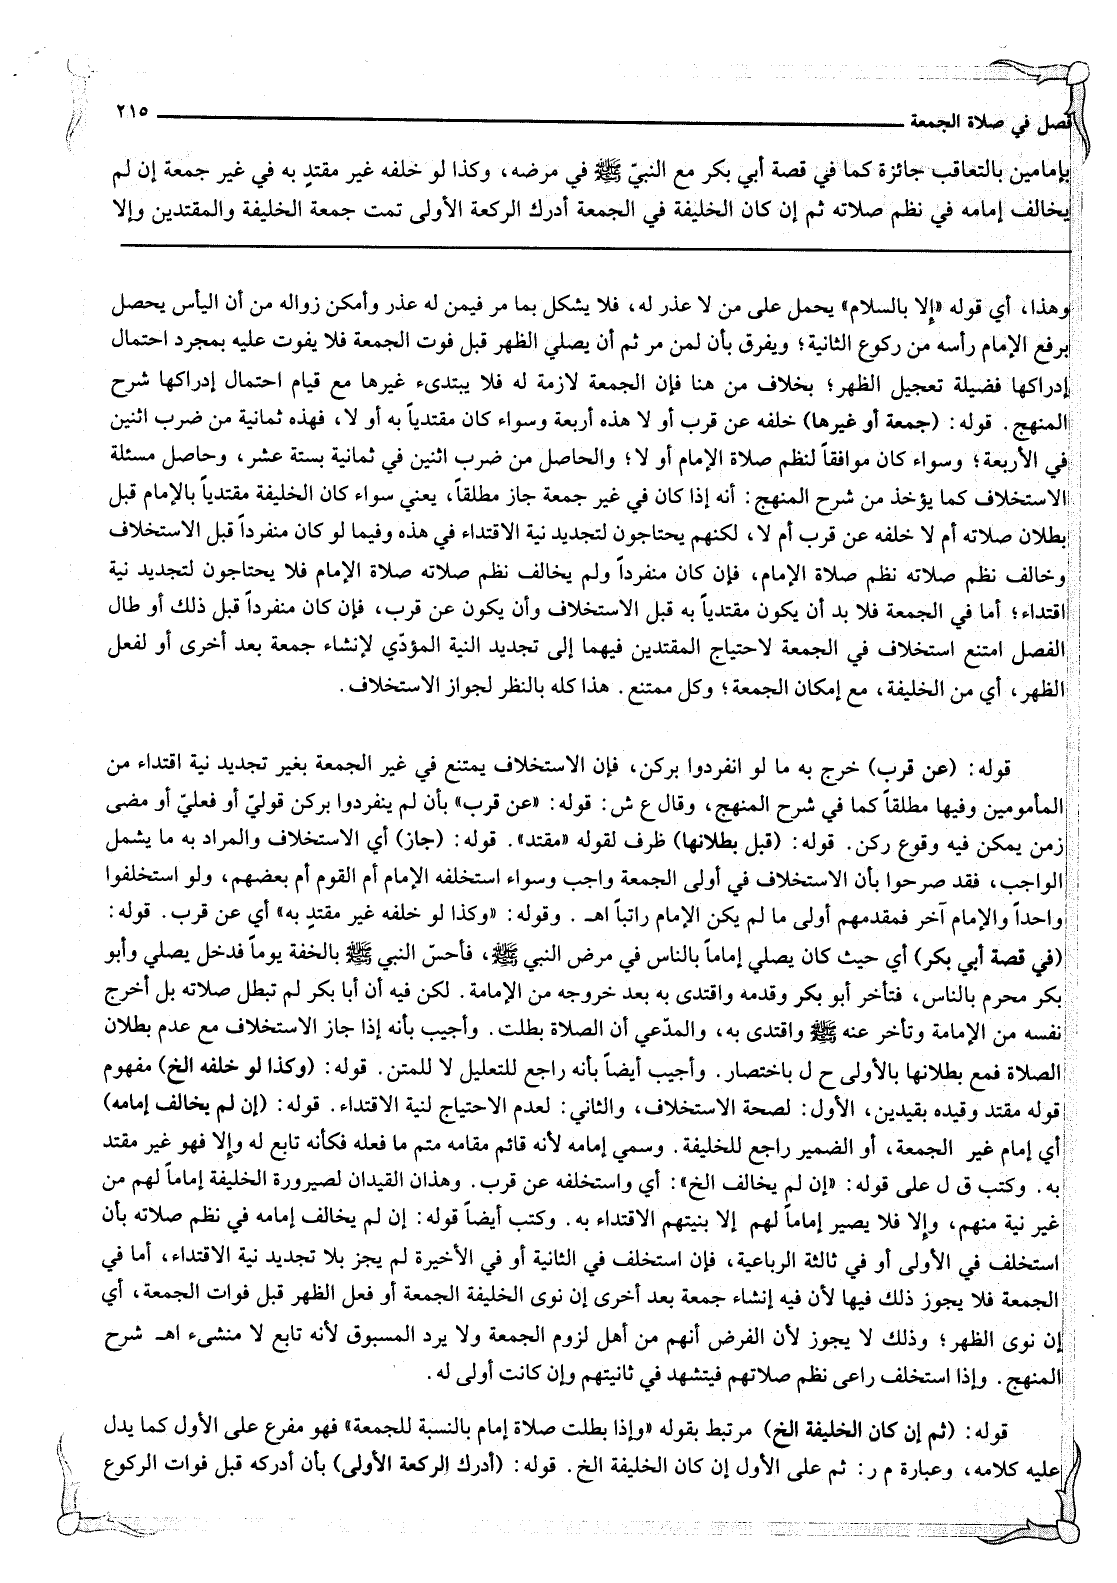 فصل في صلاة الجمعة ٢١٥
بإمامين بالتعاقب جائزة كما في قصة أبي بكر مع النبيّ ﷺ في مرضه، وكذا لو خلفه غير مقتدٍ به في غير جمعة إن لم
يخالف إمامه في نظم صلاته ثم إن كان الخليفة في الجمعة أدرك الركعة الأولى تمت جمعة الخليفة والمقتدين وإلا
وهذا، أي قوله «إلا بالسلام» يحمل على من لا عذر له، فلا يشكل بما مر فيمن له عذر وأمكن زواله من أن اليأس يحصل
برفع الإمام رأسه من ركوع الثانية؛ ويفرق بأن لمن مر ثم أن يصلي الظهر قبل فوت الجمعة فلا يفوت عليه بمجرد احتمال
إدراكها فضيلة تعجيل الظهر؛ بخلاف من هنا فإن الجمعة لازمة له فلا يبتدىء غيرها مع قيام احتمال إدراكها شرح
المنهج. قوله: (جمعة أو غيرها) خلفه عن قرب أو لا هذه أربعة وسواء كان مقتدياً به أو لا، فهذه ثمانية من ضرب اثنين
في الأربعة؛ وسواء كان موافقاً لنظم صلاة الإمام أو لا؛ والحاصل من ضرب اثنين في ثمانية بستة عشر، وحاصل مسئلة
الاستخلاف كما يؤخذ من شرح المنهج: أنه إذا كان في غير جمعة جاز مطلقاً، يعني سواء كان الخليفة مقتدياً بالإمام قبل
بطلان صلاته أم لا خلفه عن قرب أم لا، لكنهم يحتاجون لتجديد نية الاقتداء في هذه وفيما لو كان منفرداً قبل الاستخلاف
وخالف نظم صلاته نظم صلاة الإمام، فإن كان منفرداً ولم يخالف نظم صلاته صلاة الإمام فلا يحتاجون لتجديد نية
اقتداء؛ أما في الجمعة فلا بد أن يكون مقتدياً به قبل الاستخلاف وأن يكون عن قرب، فإن كان منفرداً قبل ذلك أو طال
الفصل امتنع استخلاف في الجمعة لاحتياج المقتدين فيهما إلى تجديد النية المؤدّي لإنشاء جمعة بعد أخرى أو لفعل
الظهر، أي من الخليفة، مع إمكان الجمعة؛ وكل ممتنع. هذا كله بالنظر لجواز الاستخلاف.
قوله: (عن قرب) خرج به ما لو انفردوا بركن، فإن الاستخلاف يمتنع في غير الجمعة بغير تجديد نية اقتداء من
المأمومين وفيها مطلقاً كما في شرح المنهج، وقال ع ش: قوله: «عن قرب» بأن لم ينفردوا بركن قوليّ أو فعليّ أو مضى
زمن يمكن فيه وقوع ركن. قوله: (قبل بطلانها) ظرف لقوله «مقتد». قوله: (جاز) أي الاستخلاف والمراد به ما يشمل
الواجب، فقد صرحوا بأن الاستخلاف في أولى الجمعة واجب وسواء استخلفه الإمام أم القوم أم بعضهم، ولو استخلفوا
واحداً والإمام آخر فمقدمهم أولى ما لم يكن الإمام راتباً اهـ. وقوله: «وكذا لو خلفه غير مقتدٍ به» أي عن قرب. قوله:
(في قصة أبي بكر) أي حيث كان يصلي إماماً بالناس في مرض النبي ﷺ، فأحسّ النبي ﷺ بالخفة يوماً فدخل يصلي وأبو
بكر محرم بالناس، فتأخر أبو بكر وقدمه واقتدى به بعد خروجه من الإمامة. لكن فيه أن أبا بكر لم تبطل صلاته بل أخرج
نفسه من الإمامة وتأخر عنه ﷺ واقتدى به، والمدّعي أن الصلاة بطلت. وأجيب بأنه إذا جاز الاستخلاف مع عدم بطلان
الصلاة فمع بطلانها بالأولى ح ل باختصار. وأجيب أيضاً بأنه راجع للتعليل لا للمتن. قوله: (وكذا لو خلفه الخ) مفهوم
قوله مقتد وقيده بقيدين، الأول: لصحة الاستخلاف، والثاني: لعدم الاحتياج لنية الاقتداء. قوله: (إن لم يخالف إمامه)
أي إمام غير الجمعة، أو الضمير راجع للخليفة. وسمي إمامه لأنه قائم مقامه متم ما فعله فكأنه تابع له وإلا فهو غير مقتد
به. وكتب ق ل على قوله: «إن لم يخالف الخ»: أي واستخلفه عن قرب. وهذان القيدان لصيرورة الخليفة إماماً لهم من
غير نية منهم، وإلا فلا يصير إماماً لهم إلا بنيتهم الاقتداء به. وكتب أيضاً قوله: إن لم يخالف إمامه في نظم صلاته بأن
استخلف في الأولى أو في ثالثة الرباعية، فإن استخلف في الثانية أو في الأخيرة لم يجز بلا تجديد نية الاقتداء، أما في
الجمعة فلا يجوز ذلك فيها لأن فيه إنشاء جمعة بعد أخرى إن نوى الخليفة الجمعة أو فعل الظهر قبل فوات الجمعة، أي
إن نوى الظهر؛ وذلك لا يجوز لأن الفرض أنهم من أهل لزوم الجمعة ولا يرد المسبوق لأنه تابع لا منشىء اهـ شرح
المنهج. وإذا استخلف راعى نظم صلاتهم فيتشهد في ثانيتهم وإن كانت أولى له.
قوله: (ثم إن كان الخليفة الخ) مرتبط بقوله «وإذا بطلت صلاة إمام بالنسبة للجمعة» فهو مفرع على الأول كما يدل
عليه كلامه، وعبارة م ر: ثم على الأول إن كان الخليفة الخ. قوله: (أدرك الركعة الأولى) بأن أدركه قبل فوات الركوع